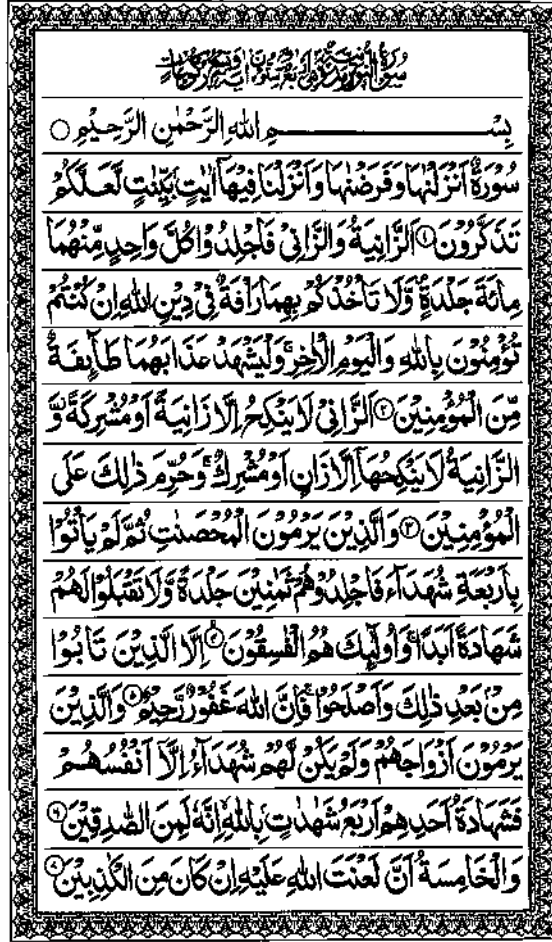 سُوْرَةُ النُّوْرِ مَدَنِيَّةٌ وَّهِيَ اَرْبَعٌ وَّسِتُّوْنَ اٰيَةً وَّتِسْعُ رُكُوْعَاتٍ
بِسْمِ اللهِ الرَّحْمٰنِ الرَّحِيْمِ ○
سُوْرَةٌ اَنْزَلْنٰهَا وَفَرَضْنٰهَا وَاَنْزَلْنَا فِيْهَاۤ اٰيٰتٍۢ بَيِّنٰتٍ لَّعَلَّكُمْ
تَذَكَّرُوْنَ ۝۱ اَلزَّانِيَةُ وَالزَّانِيْ فَاجْلِدُوْا كُلَّ وَاحِدٍ مِّنْهُمَا
مِائَةَ جَلْدَةٍ ۪ وَّلَا تَاْخُذْكُمْ بِهِمَا رَاْفَةٌ فِيْ دِيْنِ اللهِ اِنْ كُنْتُمْ
تُؤْمِنُوْنَ بِاللهِ وَالْيَوْمِ الْاٰخِرِ ۚ وَلْيَشْهَدْ عَذَابَهُمَا طَآئِفَةٌ
مِّنَ الْمُؤْمِنِيْنَ ۝۲ اَلزَّانِيْ لَا يَنْكِحُ اِلَّا زَانِيَةً اَوْ مُشْرِكَةً ؗ وَّ
الزَّانِيَةُ لَا يَنْكِحُهَاۤ اِلَّا زَانٍ اَوْ مُشْرِكٌ ۚ وَحُرِّمَ ذٰلِكَ عَلَى
الْمُؤْمِنِيْنَ ۝۳ وَالَّذِيْنَ يَرْمُوْنَ الْمُحْصَنٰتِ ثُمَّ لَمْ يَاْتُوْا
بِاَرْبَعَةِ شُهَدَآءَ فَاجْلِدُوْهُمْ ثَمٰنِيْنَ جَلْدَةً وَّلَا تَقْبَلُوْا لَهُمْ
شَهَادَةً اَبَدًا ۚ وَاُولٰٓئِكَ هُمُ الْفٰسِقُوْنَ ۝۴ اِلَّا الَّذِيْنَ تَابُوْا
مِنْۢ بَعْدِ ذٰلِكَ وَاَصْلَحُوْا ۚ فَاِنَّ اللهَ غَفُوْرٌ رَّحِيْمٌ ۝۵ وَالَّذِيْنَ
يَرْمُوْنَ اَزْوَاجَهُمْ وَلَمْ يَكُنْ لَّهُمْ شُهَدَآءُ اِلَّاۤ اَنْفُسُهُمْ
فَشَهَادَةُ اَحَدِهِمْ اَرْبَعُ شَهٰدٰتٍۭ بِاللهِ ۙ اِنَّهٗ لَمِنَ الصّٰدِقِيْنَ ۝۶
وَالْخَامِسَةُ اَنَّ لَعْنَتَ اللهِ عَلَيْهِ اِنْ كَانَ مِنَ الْكٰذِبِيْنَ ۝۷